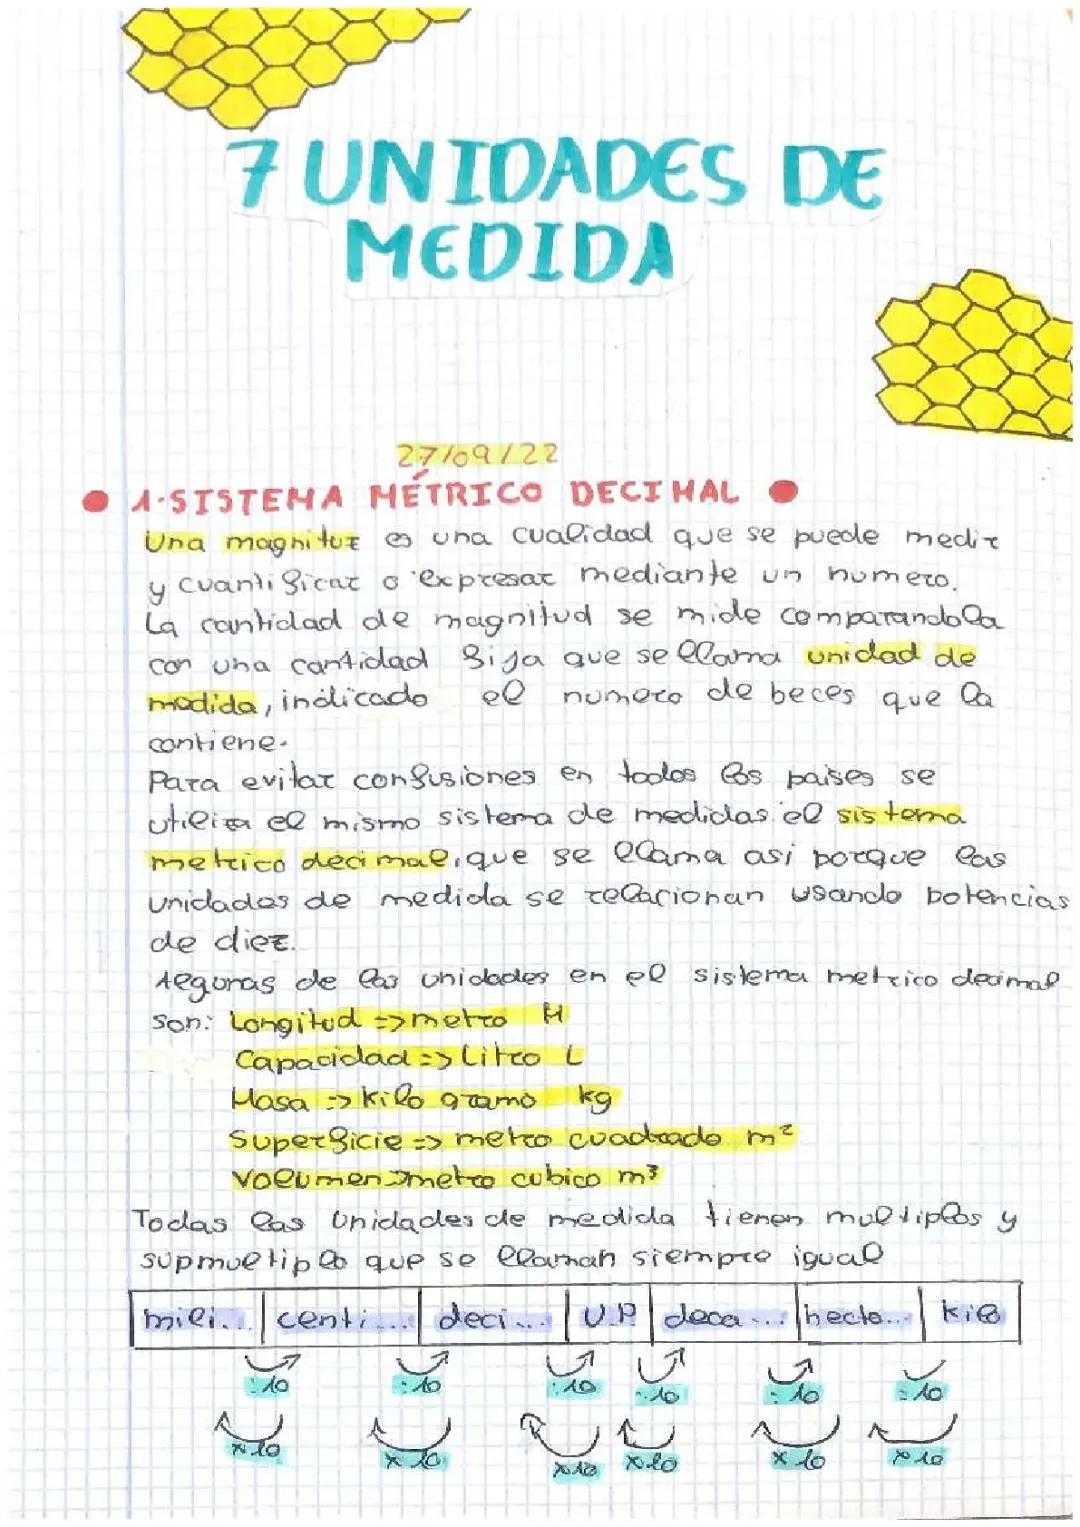 7 UNIDADES DE
MEDIDA
27/09/22
1.SISTEMA MÉTRICO DECIMAL
Una magnitut es una cualidad que se puede medir
y cuantificar o expresar mediante un numero.
La cantidad de magnitud se mide comparandola
con una cantidad fija que se llama unidad de
medida, indicado el numero de beces que la
contiene.
Para evitar confusiones en todos los paises se
utiliza el mismo sistema de medidas: el sistema
metrico decimal, que se llama asi porque las
unidades de medida se relacionan usando potencias
de diez.
Algunas de las unidades en el sistema metrico decimal
son: Longitud => metro M
Capacidad => Litro L
Masa => kilo gramo kg
Superficie => metro cuadrado m²
Volumen => metro cubico m³
Todas las unidades de medida tienen multiplos y
supmultiplo que se llaman siempre igual
mili... centi... deci... U.P deca... hecto... kilo
:10 :10 :10 :10 :10 :10
x10 x10 x10 x10 x10 x10